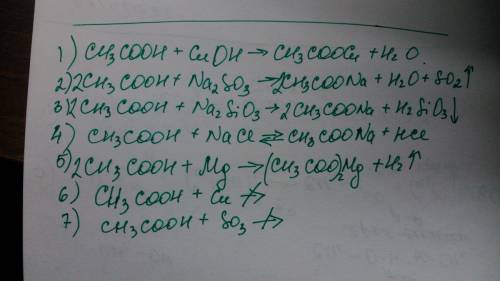 1) CH3COOH + CuOH → CH3COOCu + H2O.
2) 2CH3COOH + Na2SO3 → 2CH3COONa + H2O + SO2↑
3) 2CH3COOH + Na2SiO3 → 2CH3COONa + H2SiO3↓
4) CH3COOH + NaCl ⇌ CH3COONa + HCl
5) 2CH3COOH + Mg → (CH3COO)2Mg + H2↑
6) CH3COOH + Cu ↛
7) CH3COOH + SO3 ↛